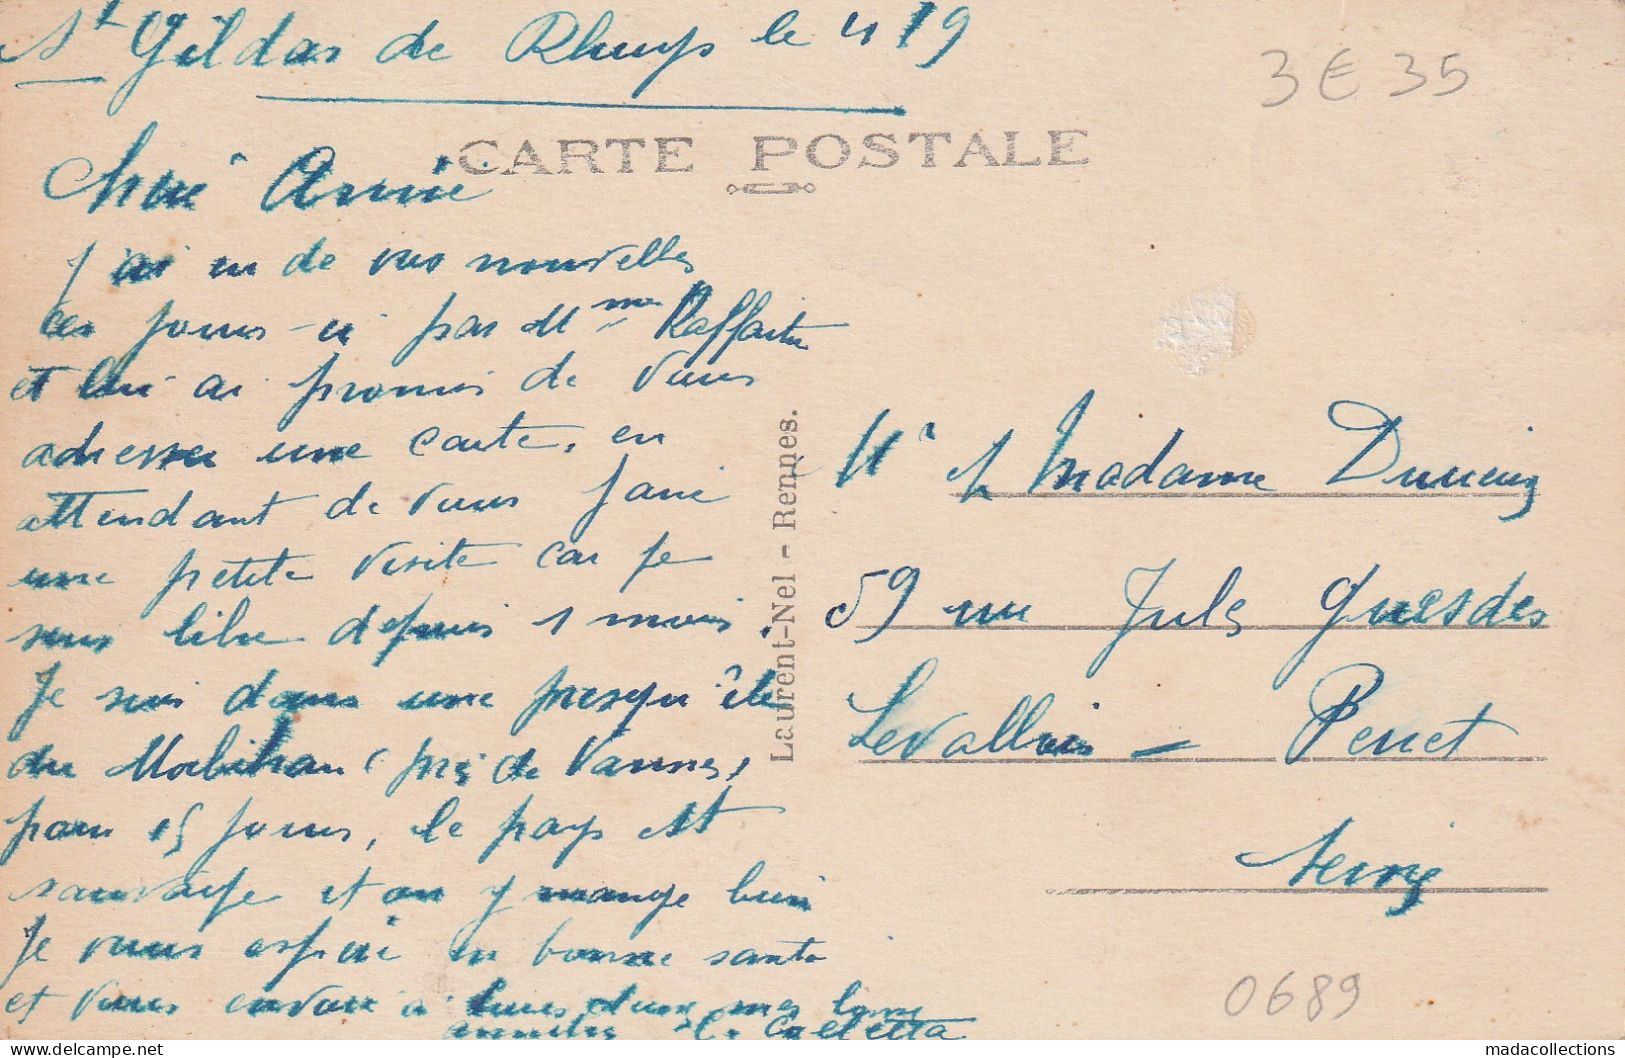 St Gildas de Rhuys le 4 / 9
3 € 35
CARTE POSTALE
Chère Annie
j'ai eu de vos nouvelles
ces jours-ci par Mme
et lui ai promis de vous
adresser une carte, en
attendant de vous faire
une petite visite car je
suis libre depuis 1 mois
Je suis dans une presqu'île
du Morbihan (près de Vannes,
pour 15 jours, le pays est
sauvage et on y mange bien
Je vous espère en bonne santé
et vous envoie à tous deux mes bonnes
amitiés
Laurent-Nel - Rennes.
Mr et Madame
59 rue Jules Guesdes
Levallois - Perret
Seine
0689
delcampe.net
madacollections